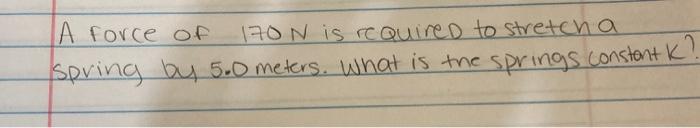 A Force of 170 N is required to stretch a
spring by 5.0 meters. What is the springs constant K?